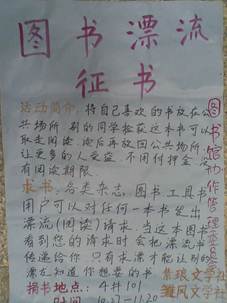 图书漂流
征书
活动简介：将自己喜欢的书放在公
共场所，别的同学捡获这本书可以
取走阅读，读后再放回公共场所，
让更多的人受益，不用付押金，没
有阅读期限
求书：各类杂志，图书工具书
用户可以对任何一本书发出
漂流（阅读）请求，当这本图书
看到您的请求时会把漂流书
传递给你，只有求漂才能让别的
漂友知道你想要的书
捐书地点：4井101
时间 10.27-11.20
图书馆协作管理委员会
隽琅文学社
雏风文学社